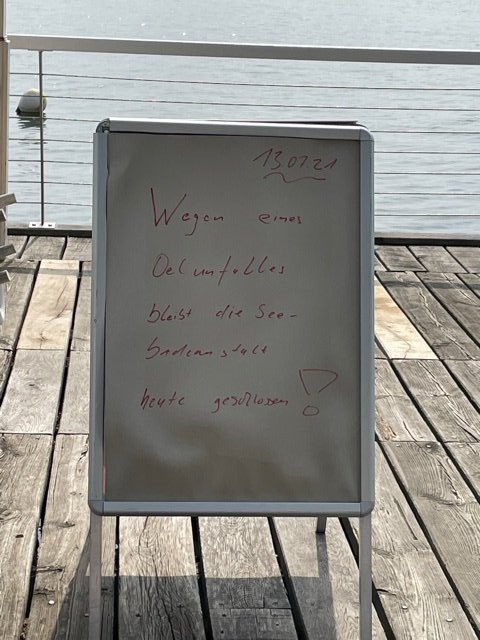 13.07.21
Wegen eines
Oelunfalles
bleibt die See-
badeanstalt
heute geschlossen!